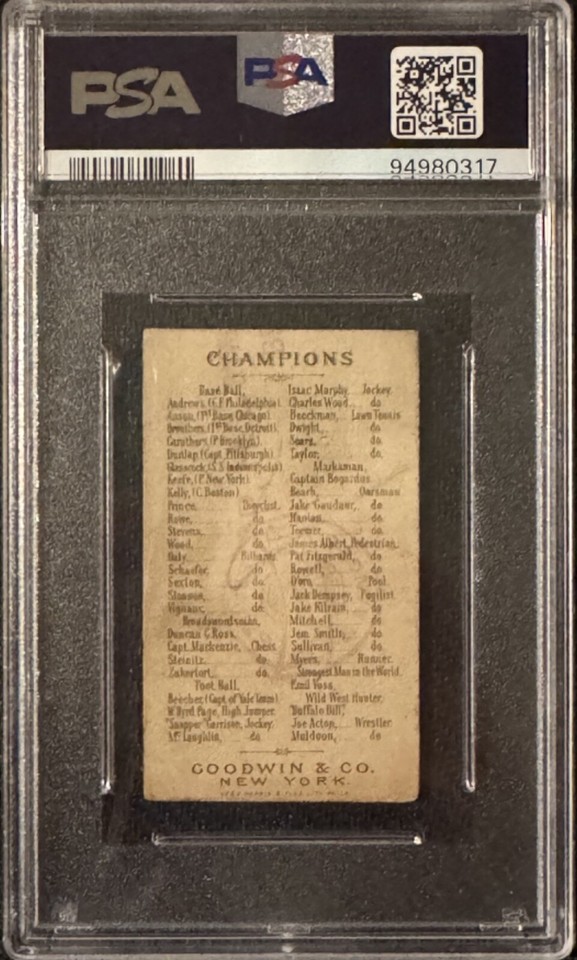 PSA
PSA
94980317
CHAMPIONS
Base Ball,
Andrews, (C.F. Philadelphia).
Anson, (1st Base, Chicago).
Brouthers, (1st Base, Detroit).
Caruthers, (P. Brooklyn).
Dunlap (Capt. Pittsburgh).
Glasscock, (S.S. Indianapolis).
Keefe, (P. New York).
Kelly, (C. Boston)
Prince, Bicyclist.
Rowe, do.
Stevens, do.
Wood, do.
Daly, Billiards.
Schaefer, do
Sexton, do.
Slosson, do
Vignaux, do.
Broadswordsman,
Duncan C. Ross.
Capt. Mackenzie, Chess
Steinitz, do.
Zukertort, do.
Foot Ball,
Beecher, (Capt. of Yale Team).
W. Byrd Page, High Jumper.
"Snapper" Garrison, Jockey.
McLaughlin, do.
Isaac Murphy, Jockey.
Charles Wood, do.
Beeckman, Lawn Tennis
Dwight, do.
Sears, do.
Taylor, do.
Marksman,
Captain Bogardus.
Beach, Oarsman
Jake Gaudaur, do.
Hanlan, do.
Teemer, do.
James Albert, Pedestrian.
Pat Fitzgerald, do.
Rowell, do.
D'oro Pool.
Jack Dempsey, Pugilist.
Jake Kilrain, do.
Mitchell, do.
Jem Smith, do.
Sullivan, do.
Myers, Runner.
Strongest Man in the World.
Emil Voss,
Wild West Hunter,
"Buffalo Bill,"
Joe Acton, Wrestler.
Muldoon, do.
GOODWIN & CO.
NEW YORK.